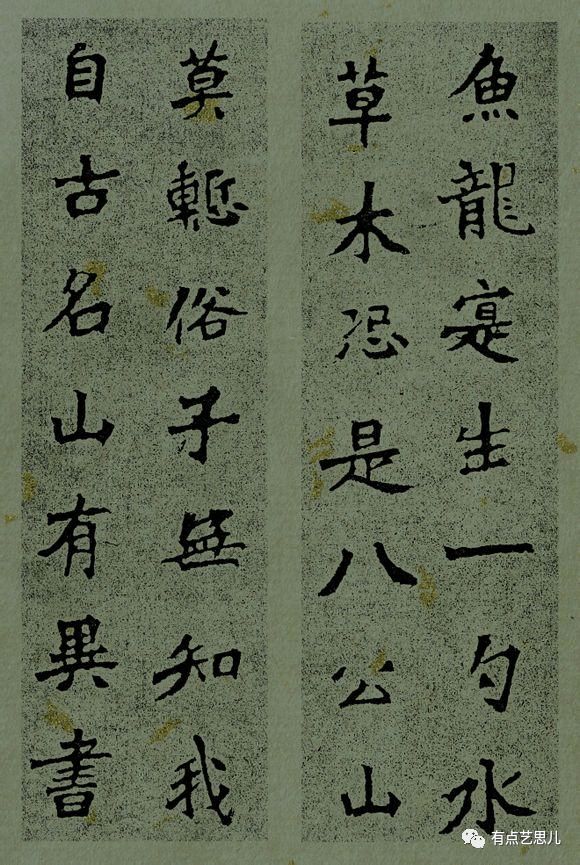 魚龍寔生一勺水
草木恐是八公山
莫慙俗子無知我
自古名山有異書
有点艺思儿